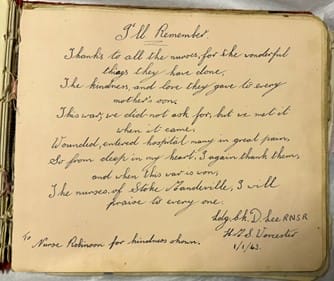 I'll Remember.
Thanks to all the nurses, for the wonderful
things they have done,
The kindness, and love they gave to every
mother's son,
This war, we did not ask for, but we met it
when it came,
Wounded, entered hospital many in great pain,
So from deep in my heart, I again thank them,
and when this war is won,
The nurses of Stoke Mandeville, I will
praise to every one.
Ldg. Sk. D. Lee RNSR
H.M.S. Worcester
1/1/43.
To Nurse Robinson for kindness shown.